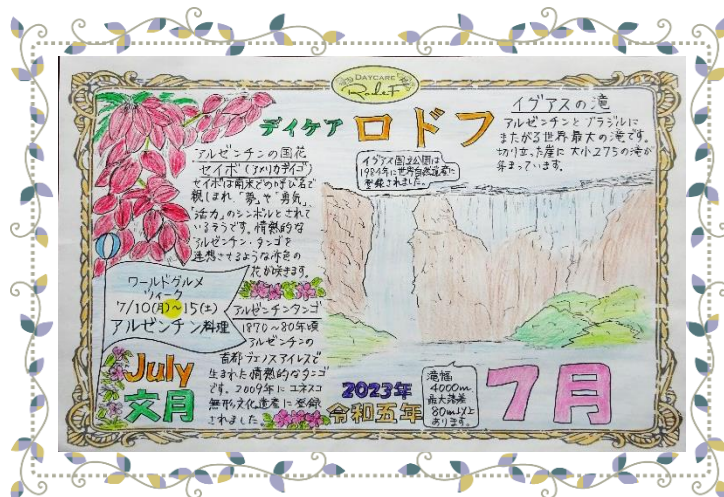 DAYCARE
RodeF
デイケア ロドフ
イグアスの滝
アルゼンチンと ブラジルに
またがる世界最大の滝です。
切り立った崖に 大小275の滝が
集まっています。
イグアス国立公園は
1984年に世界自然遺産に
登録されました。
アルゼンチンの国花
セイボ(アメリカデイゴ)
セイボは南米での呼び名で
親しまれ、「夢」や「勇気」
「活力」のシンボルとされて
いるそうです。情熱的な
アルゼンチン・タンゴを
連想させるような赤色の
花が咲きます。
ワールドグルメ
ツィーク
7/10(月)~15(土)
アルゼンチン料理
アルゼンチンタンゴ
1870~80年頃
アルゼンチンの
首都ブエノスアイレスで
生まれた情熱的なタンゴ
です。2009年にユネスコ
無形文化遺産に登録
されました。
July
文月
2023年
令和五年
滝幅
4000m
最大落差
80m以上
あります。
7月